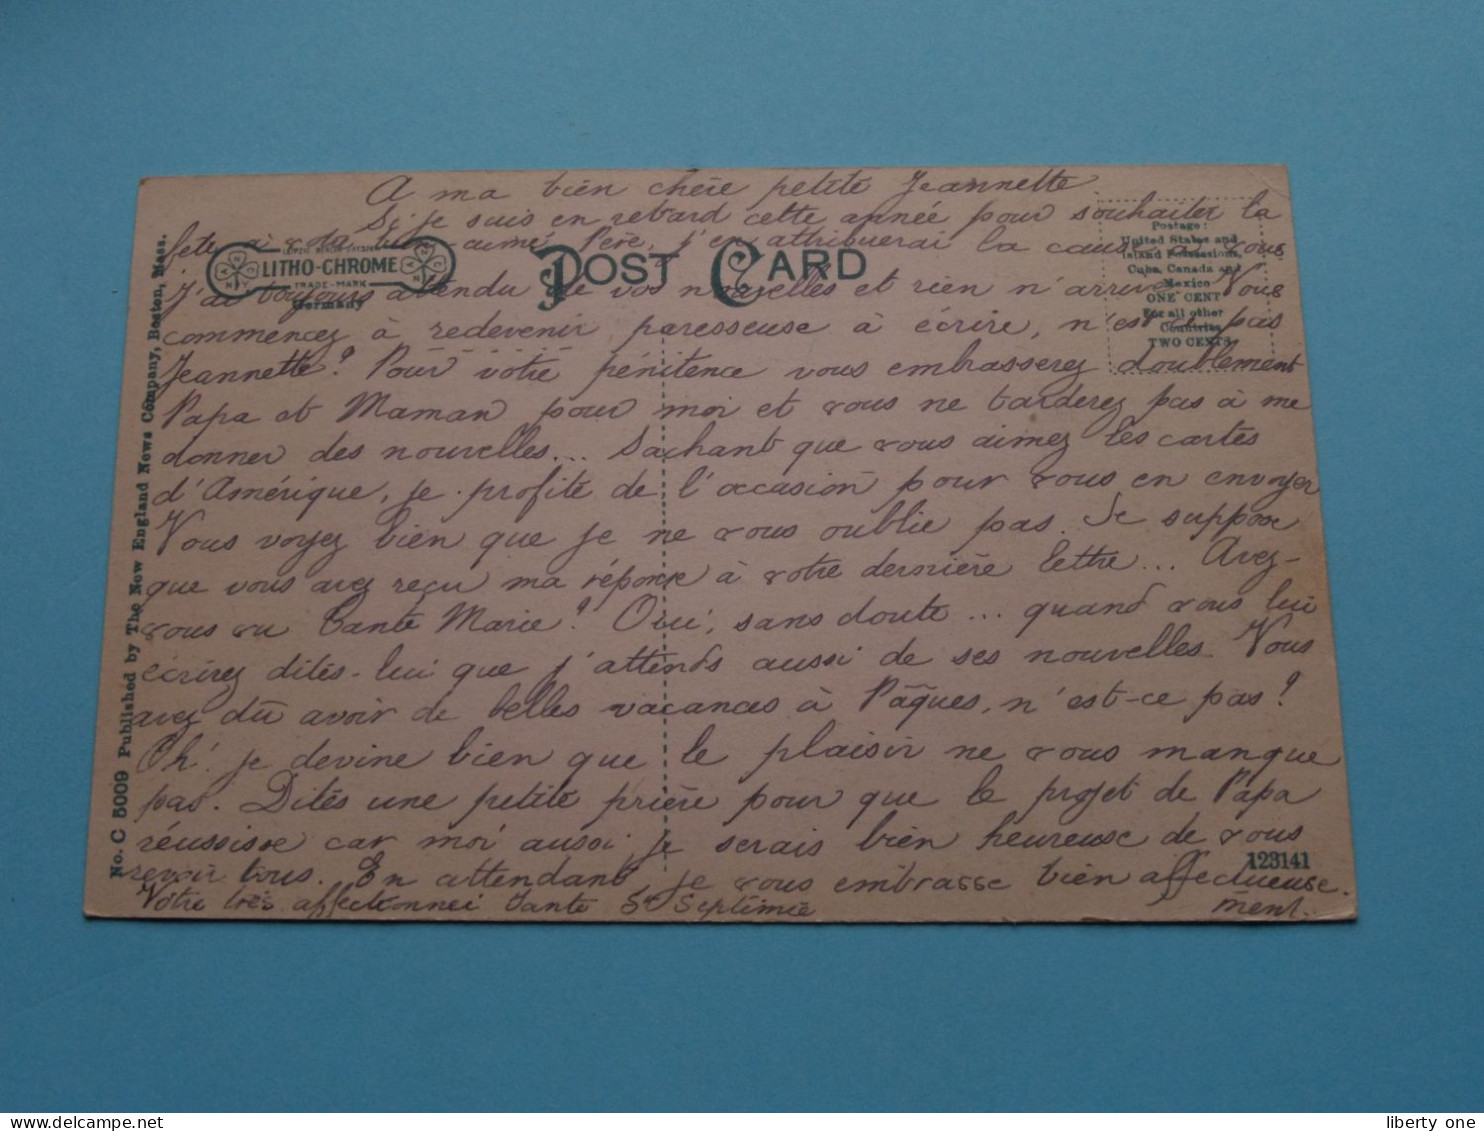 A ma bien chère petite Jeannette
Si je suis en retard cette année pour souhaiter la
fête à bien-aimé Père, j'en attribuerai la cause à vous
J'ai toujours attendu de vos nouvelles et rien n'arrive. Vous
commencez à redevenir paresseuse à écrire, n'est-ce pas
Jeannette? Pour votre pénitence vous embrasserez doublement
Papa et Maman pour moi et vous ne tarderez pas à me
donner des nouvelles... Sachant que vous aimez les cartes
d'Amérique, je profite de l'occasion pour vous en envoyer
Vous voyez bien que je ne vous oublie pas. Je suppose
que vous avez reçu ma réponse à votre dernière lettre... Avez-
vous vu Tante Marie? Oui, sans doute... quand vous lui
écrirez dites-lui que j'attends aussi de ses nouvelles. Vous
avez dû avoir de belles vacances à Pâques, n'est-ce pas?
Oh! je devine bien que le plaisir ne vous manque
pas. Dites une petite prière pour que le projet de Papa
réussisse car moi aussi, je serais bien heureuse de vous
revoir tous. En attendant je vous embrasse bien affectueuse-
ment.
Votre très affectionnée Tante Sr Septimie
POST CARD
LITHO-CHROME
TRADE-MARK
Germany
Postage:
United States and
Island Possessions,
Cuba, Canada and
Mexico
ONE CENT
For all other
Countries
TWO CENTS
No. C 5009 Published by The New England News Company, Boston, Mass.
123141
liberty one
delcampe.net